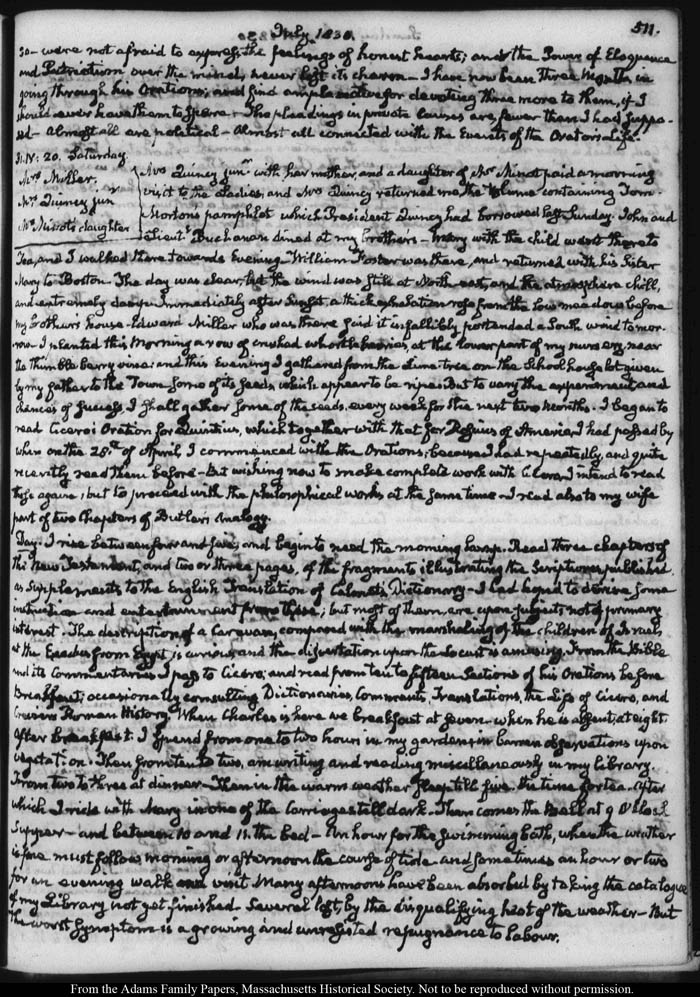 July 1830.
511.
so — were not afraid to express the feelings of honest hearts; and the Power of Eloquence
and Patriotism over the mind, never lost its charm — I have now been three Months in
going through his Orations; and find ample motive for devoting three more to them, if I
should ever have them to spare. The pleadings in private causes are fewer than I had suppo-
sed — Almost all are political — Almost all connected with the Events of the Orator's Life.
31. IV: 20. Saturday.
Mrs Miller.
Mrs Quincy junr
Mr Minot's daughter
Mrs Quincy junr with her mother, and a daughter of Mr Minot paid a morning
visit to the Ladies, and Mrs Quincy returned me the volume containing Tom.
Morton's pamphlet which President Quincy had borrowed last Sunday. John and
Lieutt Buchanan dined at my brother's — Mary with the child went there to
Tea, and I walked there towards Evening. William Foster was there, and returned with his Sister
Mary to Boston. The day was clear, but the wind was still at North-east, and the atmosphere chill,
and extremely damp. Immediately after Sunset, a thick exhalation rose from the low meadows before
my brother's house. Edward Miller who was there said it infallibly portended a South wind to mor-
row. I planted this Morning a row of crushed whortleberries, at the lower part of my nursery, near
the thimble berry vines: and this Evening I gathered from the Lime tree on the School house lot given
by my father to the Town some of its seeds which appear to be ripe. But to vary the experiment and
chances of success, I shall gather some of the seeds every week for the next two Months. I began to
read Cicero's Oration for Quintius, which together with that for Roscius of America I had passed by
when on the 28th of April I commenced with the Orations; because I had repeatedly, and quite
recently read them before — But wishing now to make complete work with Cicero I intend to read
these again; but to proceed with the philosophical works at the same time. I read also to my wife
part of two Chapters of Butler's Analogy.
Day. I rise between four and five; and begin to need the morning lamp. Read three chapters of
the New Testament, and two or three pages, of the fragments illustrating the Scriptures, published
as Supplements to the English Translation of Calmet's Dictionary — I had hoped to derive some
instruction and entertainment from these; but most of them are upon subjects not of primary
interest. The description of a Caravan, compared with the marshaling of the children of Israel
at the Exodus from Egypt, is curious, and the dissertation upon the Locust is amusing. From the Bible
and its Commentaries I pass to Cicero, and read from ten to fifteen Sections of his Orations before
Breakfast; occasionally consulting Dictionaries, Comments, Translations, the Life of Cicero, and
Roman History. When Charles is here we breakfast at seven — when he is absent, at eight.
After Breakfast. I spend from one to two hours in my garden; in barren observations upon
vegetation. Then from ten to two, am writing and reading miscellaneously in my library.
From two to three at dinner — Then in the warm weather sleep till five. the time for tea. After
which I ride with Mary in one of the Carriages till dark. Then comes the bell at 9 O'Clock
Supper — and between 10 and 11. the bed — An hour for the swimming bath, when the weather
is fine must follow morning or afternoon the course of tide — and sometimes an hour or two
for an evening walk and visit. Many afternoons have been absorbed by taking the catalogue
of my Library not yet finished — Several lost, by the disqualifying heat of the weather — But
the worst symptom is a growing and unresisted repugnance to labour.
From the Adams Family Papers, Massachusetts Historical Society. Not to be reproduced without permission.